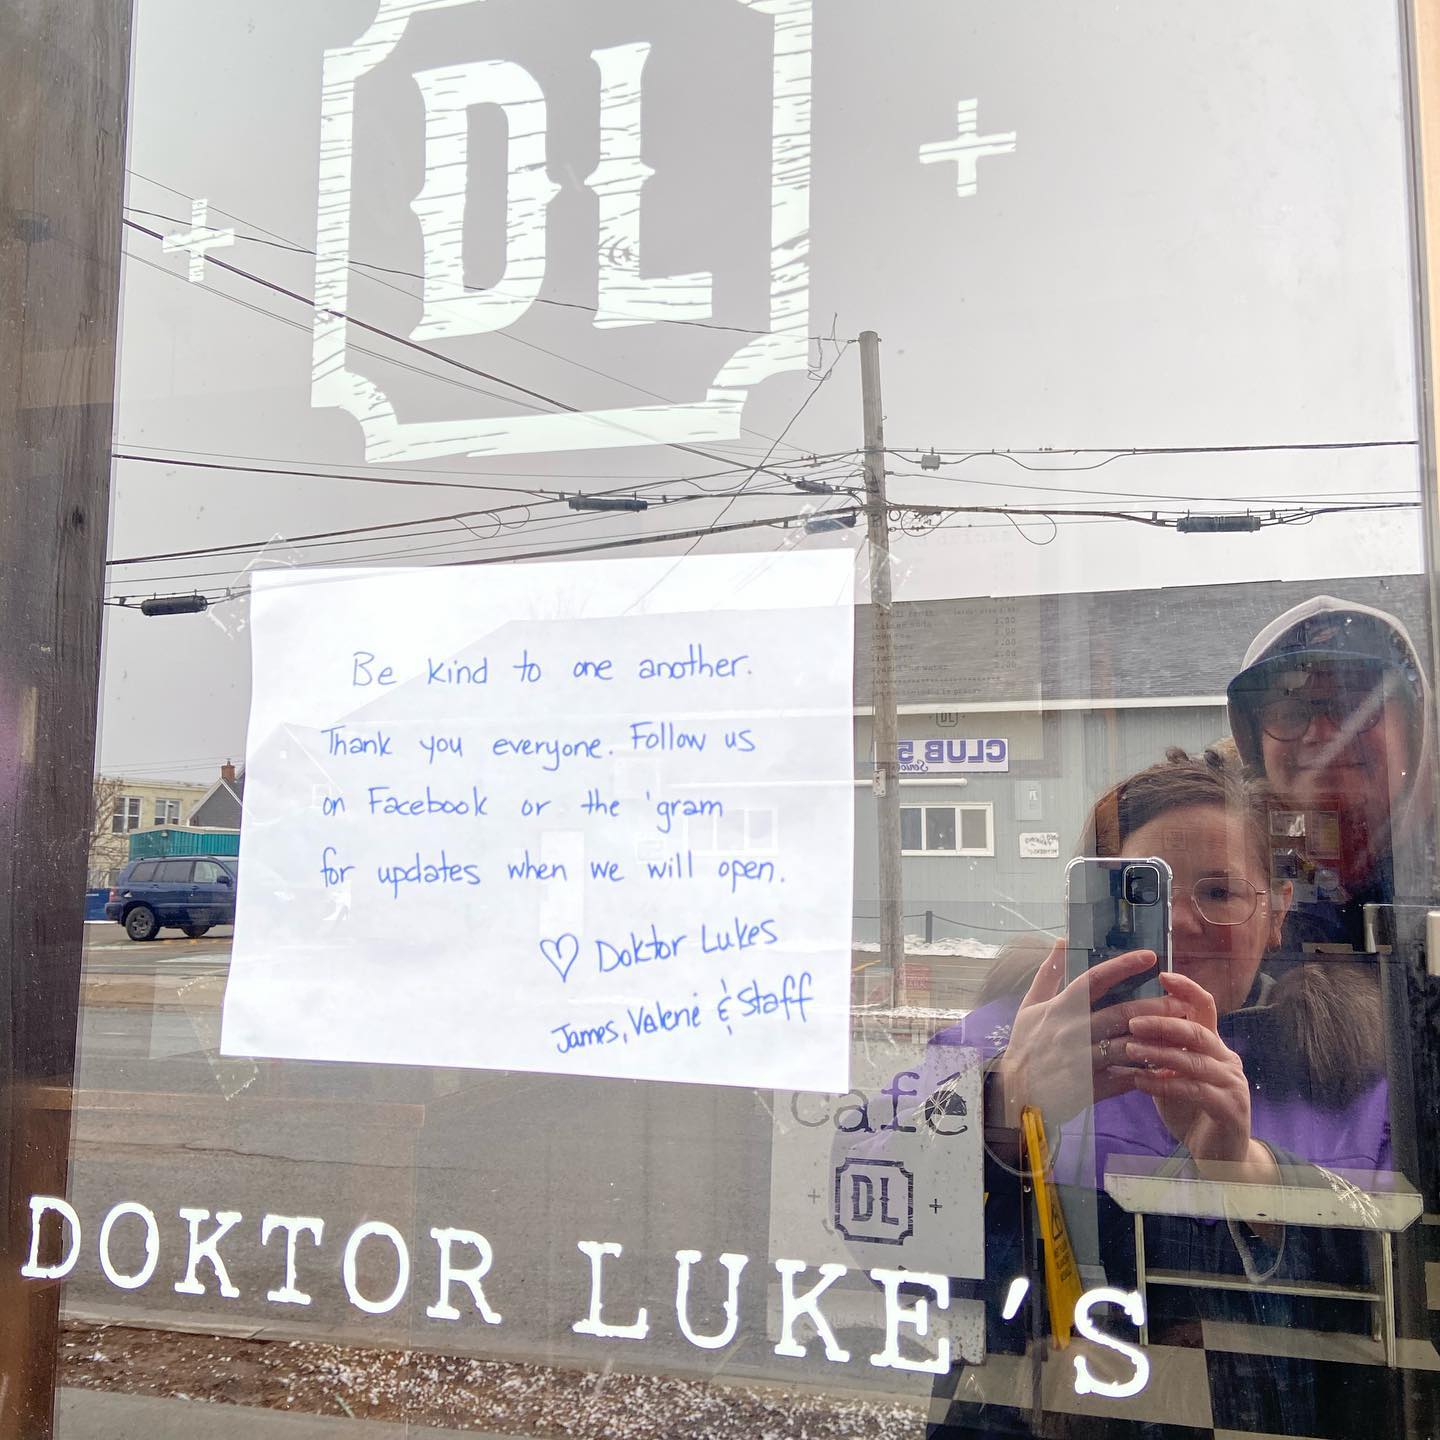 DL
Be kind to one another.
Thank you everyone. Follow us
on Facebook or the 'gram
for updates when we will open.
♡ Doktor Lukes
James, Valerie & Staff
CLUB 5
café
DL
DOKTOR LUKE'S